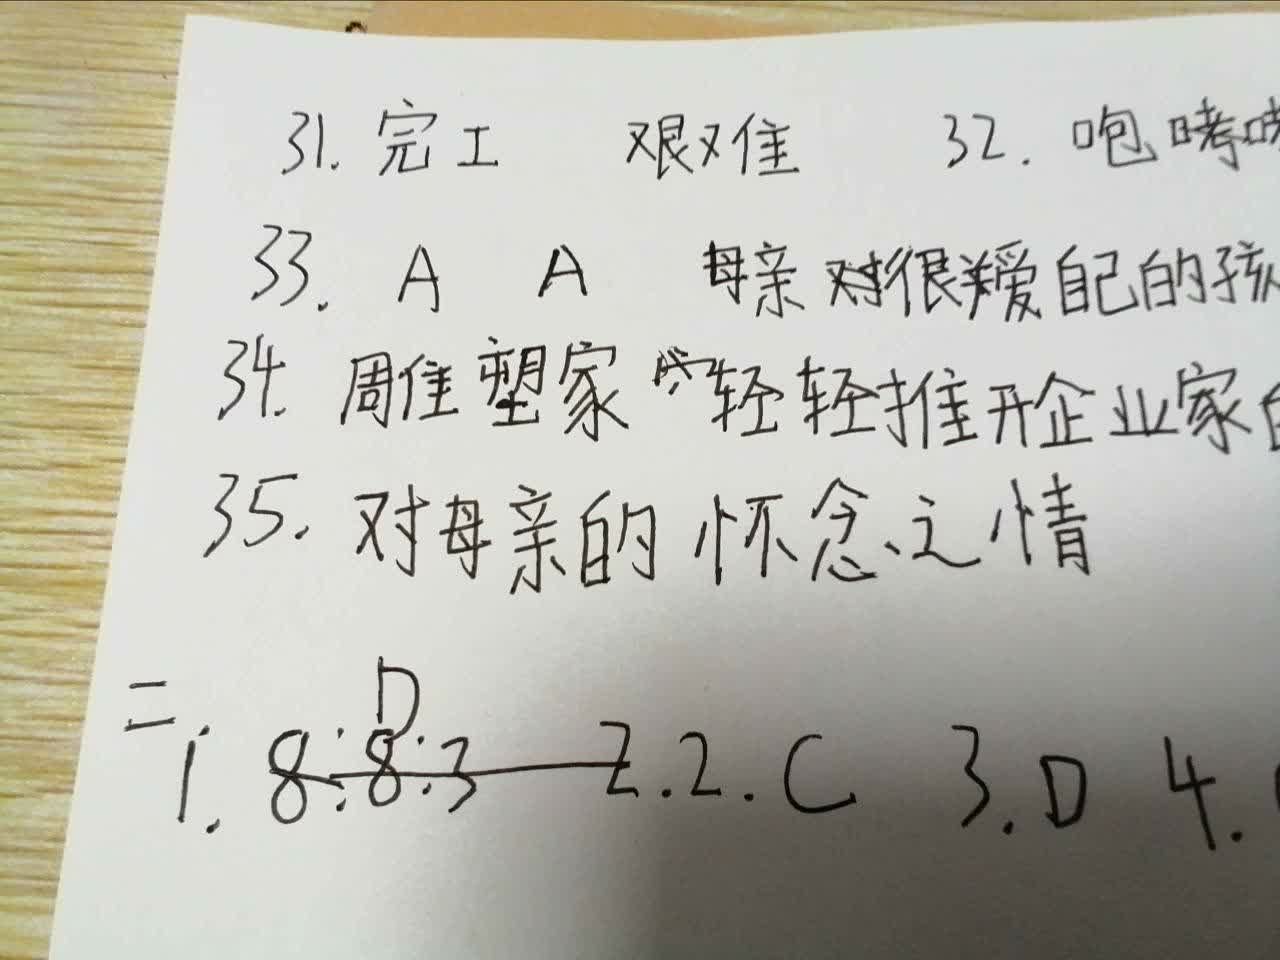 31. 完工 艰难 32. 咆哮
33. A A 母亲 很爱自己的孩
34. 周佳塑家 轻轻推开企业家
35. 对母亲的怀念之情
D
二. 1. 8:8:3 2.2. C 3. D 4.